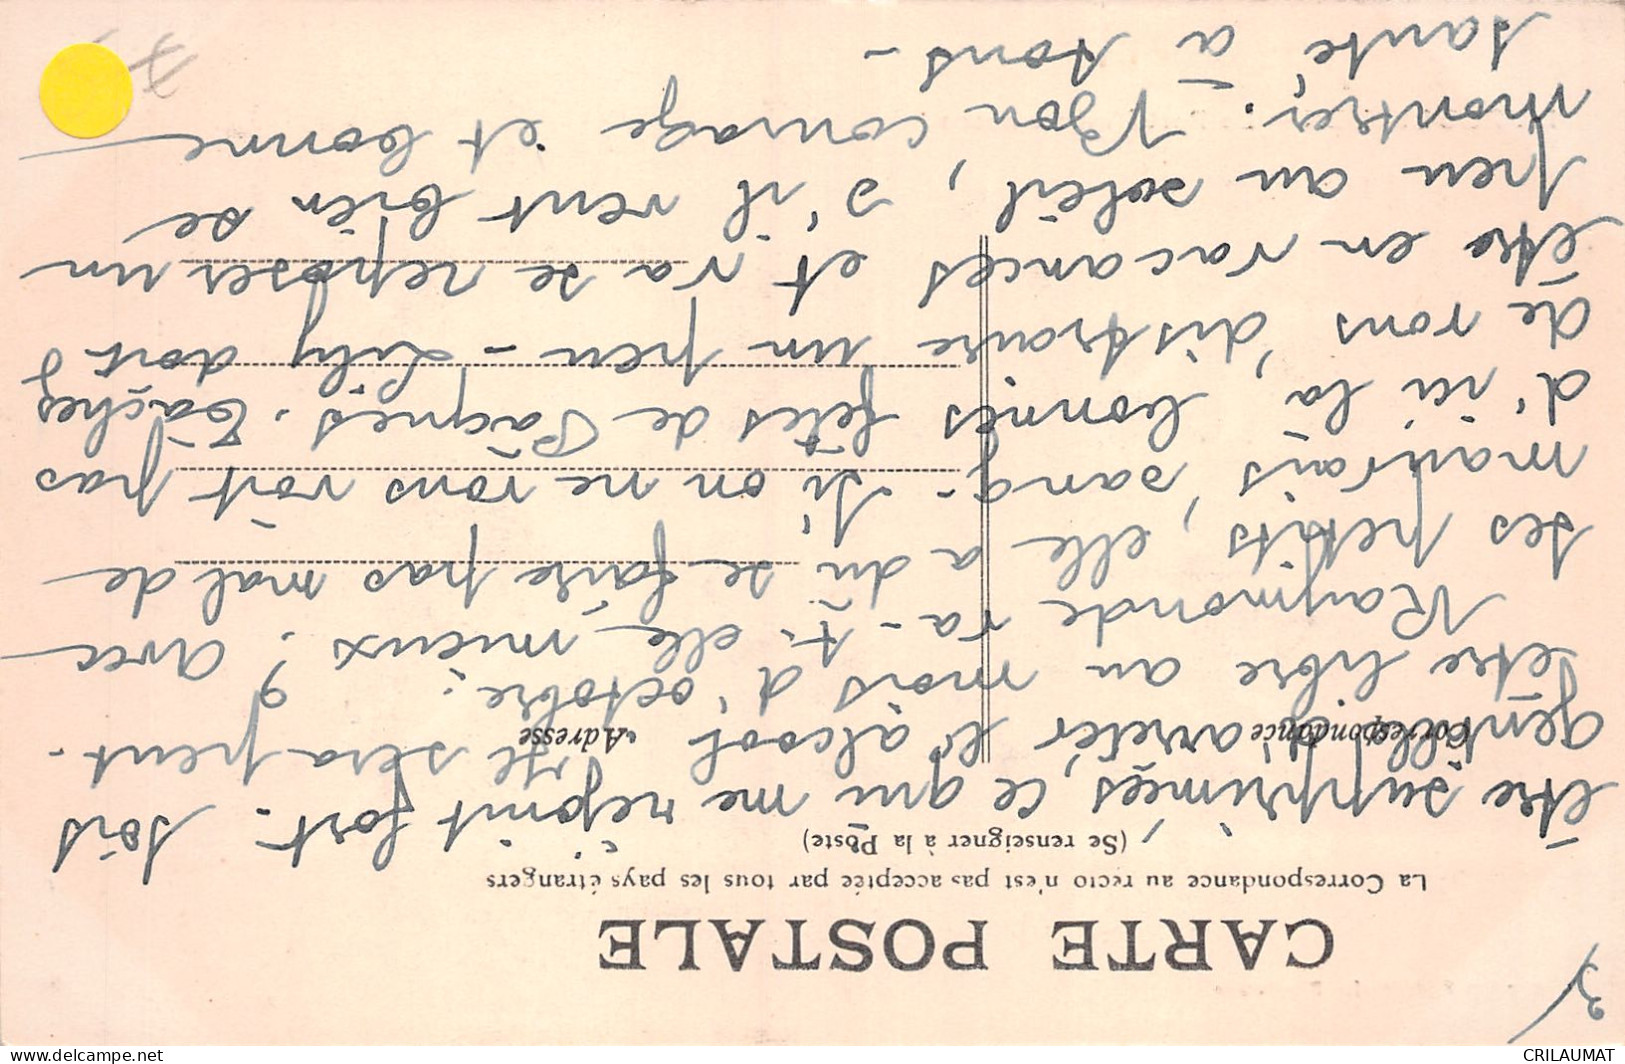 3/
CARTE POSTALE
La Correspondance au recto n'est pas acceptée par tous les pays étrangers
(Se renseigner à la Poste)
Correspondance
Adresse
être supprimées, ce qui me réjouit fort. Sois
gentille d'arrêter l'alcool. Je serai peut-
être libre au mois d'octobre.
Raymonde va-t-elle mieux ? avec
ses petits, elle a du se faire pas mal de
mauvais sang - Si on ne vous voit pas
d'ici là, bonnes fêtes de Pâques. Tâchez
de vous distraire un peu - Lily doit
être en vacances et va se reposer un
peu au soleil, s'il veut bien se
montrer. Bon courage et bonne
santé à tous -
www.delcampe.net
CRILAUMAT